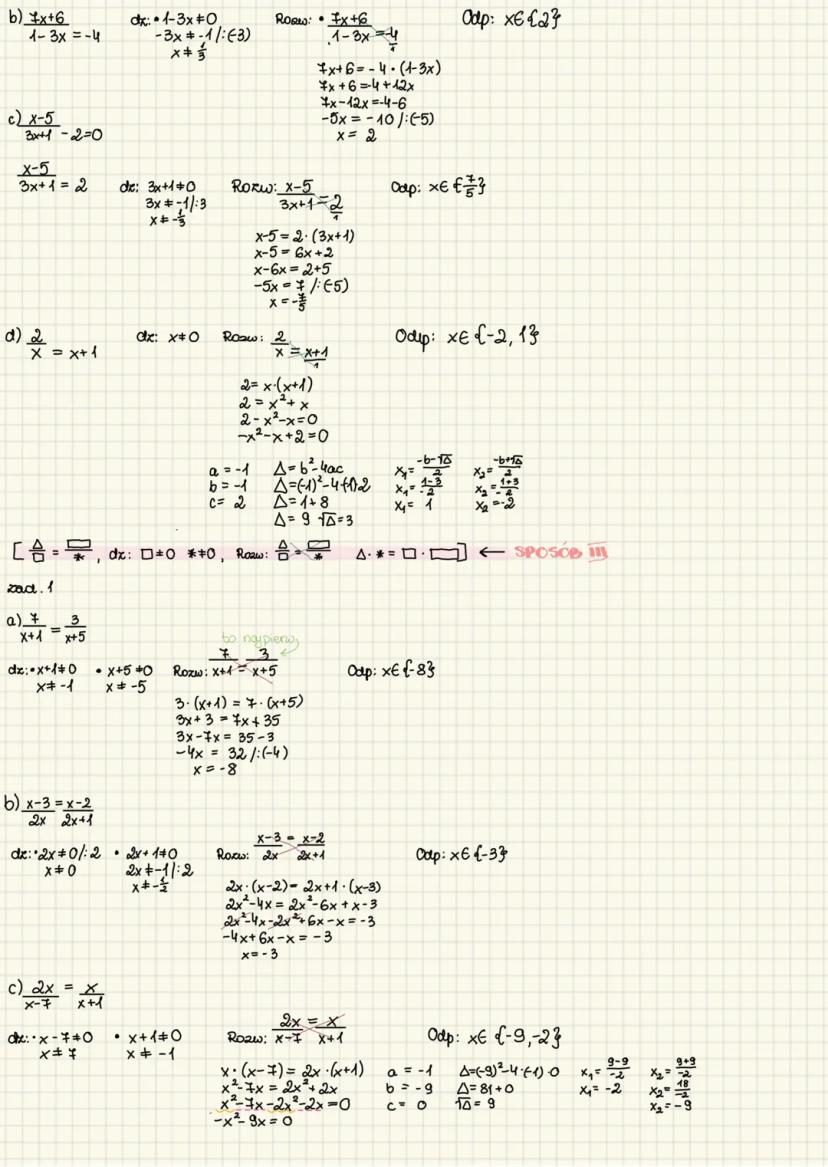 b) 7x+6/1-3x = -4
dz: • 1-3x ≠ 0
-3x ≠ -1 /:(-3)
x ≠ 1/3
Rozw: • 7x+6/1-3x = -4/1
7x+6 = -4 · (1-3x)
7x+6 = -4+12x
7x-12x = -4-6
-5x = -10 /:(-5)
x = 2
Odp: x∈{2}
c) x-5/3x+1 - 2 = 0
x-5/3x+1 = 2
dz: 3x+1≠0
3x ≠ -1 /:3
x ≠ -1/3
Rozw: x-5/3x+1 = 2/1
x-5 = 2·(3x+1)
x-5 = 6x+2
x-6x = 2+5
-5x = 7 /:(-5)
x = -7/5
Odp: x∈{7/5}
d) 2/x = x+1
dz: x≠0
Rozw: 2/x = x+1/1
2 = x·(x+1)
2 = x²+x
2-x²-x=0
-x²-x+2=0
Odp: x∈{-2, 1}
a = -1
b = -1
c = 2
Δ = b²-4ac
Δ=(-1)²-4·(-1)·2
Δ = 1+8
Δ = 9 √Δ=3
x₁= -b-√Δ/2
x₁= 1-3/-2
x₁= 1
x₂= -b+√Δ/2
x₂= 1+3/-2
x₂=-2
[Δ/□ = ▭/*, dz: □≠0 *≠0, Rozw: Δ/□ = ▭/* Δ·* = □·▭] ← SPOSÓB III
zad. 1
a) 7/x+1 = 3/x+5
dz: • x+1≠0
x≠ -1
• x+5 ≠0
x ≠ -5
bo najpierw
Rozw: 7/x+1 = 3/x+5
3·(x+1) = 7·(x+5)
3x+3 = 7x+35
3x-7x = 35-3
-4x = 32 /:(-4)
x = -8
Odp: x∈{-8}
b) x-3/2x = x-2/2x+1
dz: • 2x≠0/:2
x≠0
• 2x+1≠0
2x≠-1/:2
x≠-1/2
Rozw: x-3/2x = x-2/2x+1
2x·(x-2) = 2x+1·(x-3)
2x²-4x = 2x²-6x+x-3
2x²-4x-2x²+6x-x = -3
-4x+6x-x = -3
x=-3
Odp: x∈{-3}
c) 2x/x-7 = x/x+1
dz: • x-7≠0
x≠7
• x+1≠0
x ≠ -1
Rozw: 2x/x-7 = x/x+1
x·(x-7) = 2x·(x+1)
x²-7x = 2x²+2x
x²-7x-2x²-2x=0
-x²-9x = 0
Odp: x∈ {-9,-2}
a = -1
b = -9
c = 0
Δ=(-9)²-4·(-1)·0
Δ= 81+0
√Δ= 9
x₁= 9-9/-2
x₁= -2
x₂= 9+9/-2
x₂= 18/-2
x₂=-9